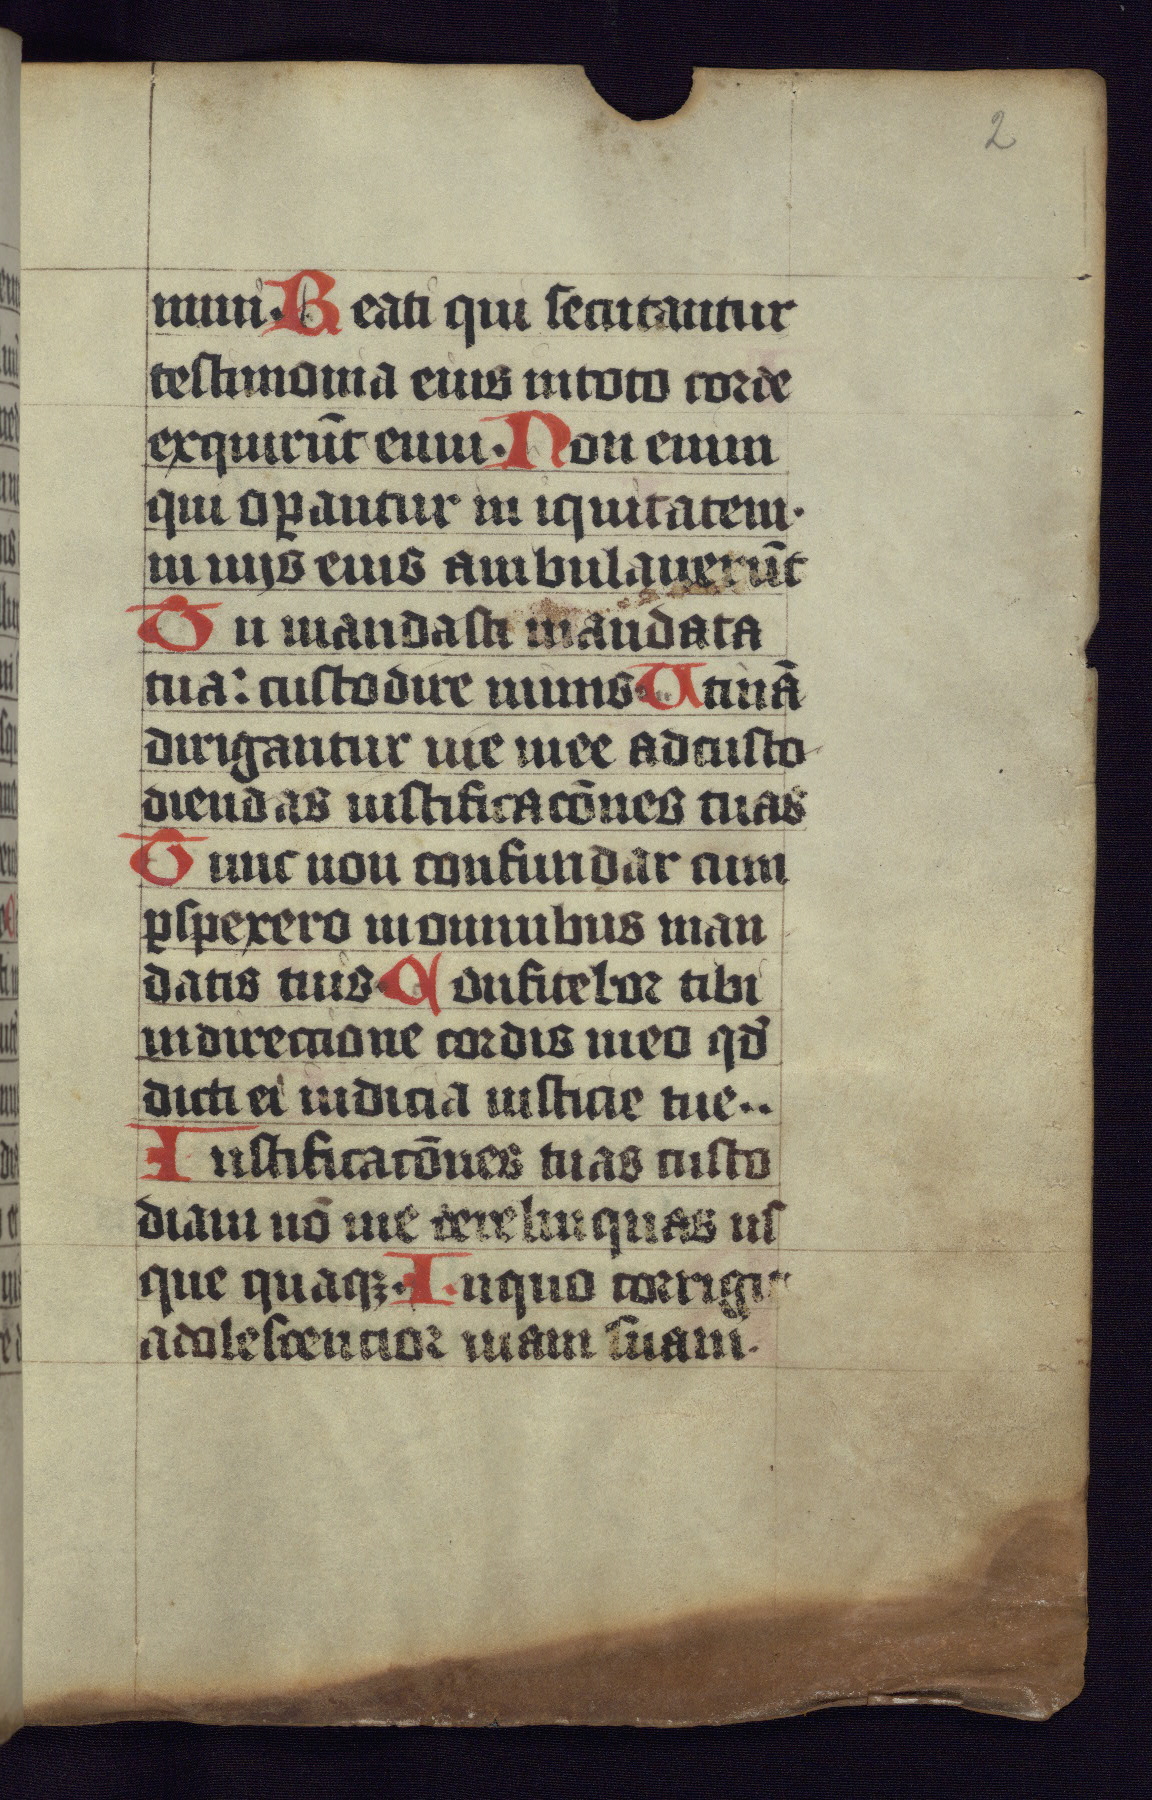 2
mini. Beati qui scrutantur
testimonia eius in toto corde
exquirūt eum. Non enim
qui opantur in iquitatem.
in uijs eius ambulauerūt
Tu mandasti mandata
tua: custodire nimis. Utinā
dirigantur uie mee ad custo
diendas iustificacōnes tuas
Tunc non confundar cum
pspexero in omnibus man
datis tuis. Confitebor tibi
in directione cordis meo qd
dicti ei iudicia iusticie tue..
Iustificacōnes tuas custo
diam nō me derelinquas us
que quaqȝ. Inquo corrigit
adolescencior uiam suam.